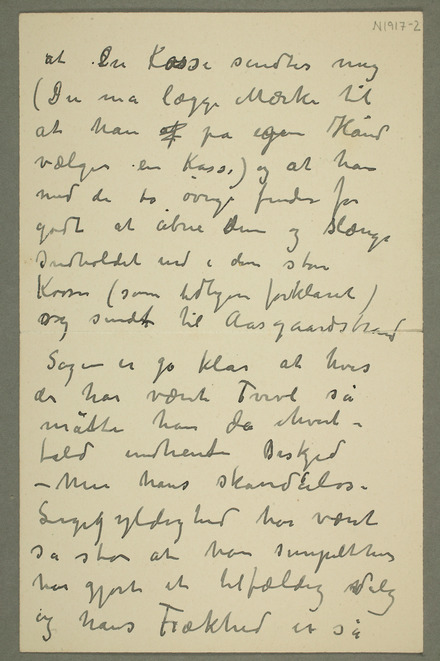 N1917-2
at en Kasse sendtes mig
(Du må lægge Mærke til
at han på egen Hånd
vælger en Kasse) og at han
med de to øvrige finder for
godt at åbne dem og slænge
Indholdet ned i den store
Kasse (som tidligere forklaret)
og sendt til Aasgaardstrand
Sagen er jo klar at hvis
der har været Tvivl så
måtte han da ihvert-
fald indhente Beskjed
– Men hans skandaløse
Ligegyldighed har været
så stor at han simpelthen
har gjort et tilfældig Valg
og hans Frækhed er så